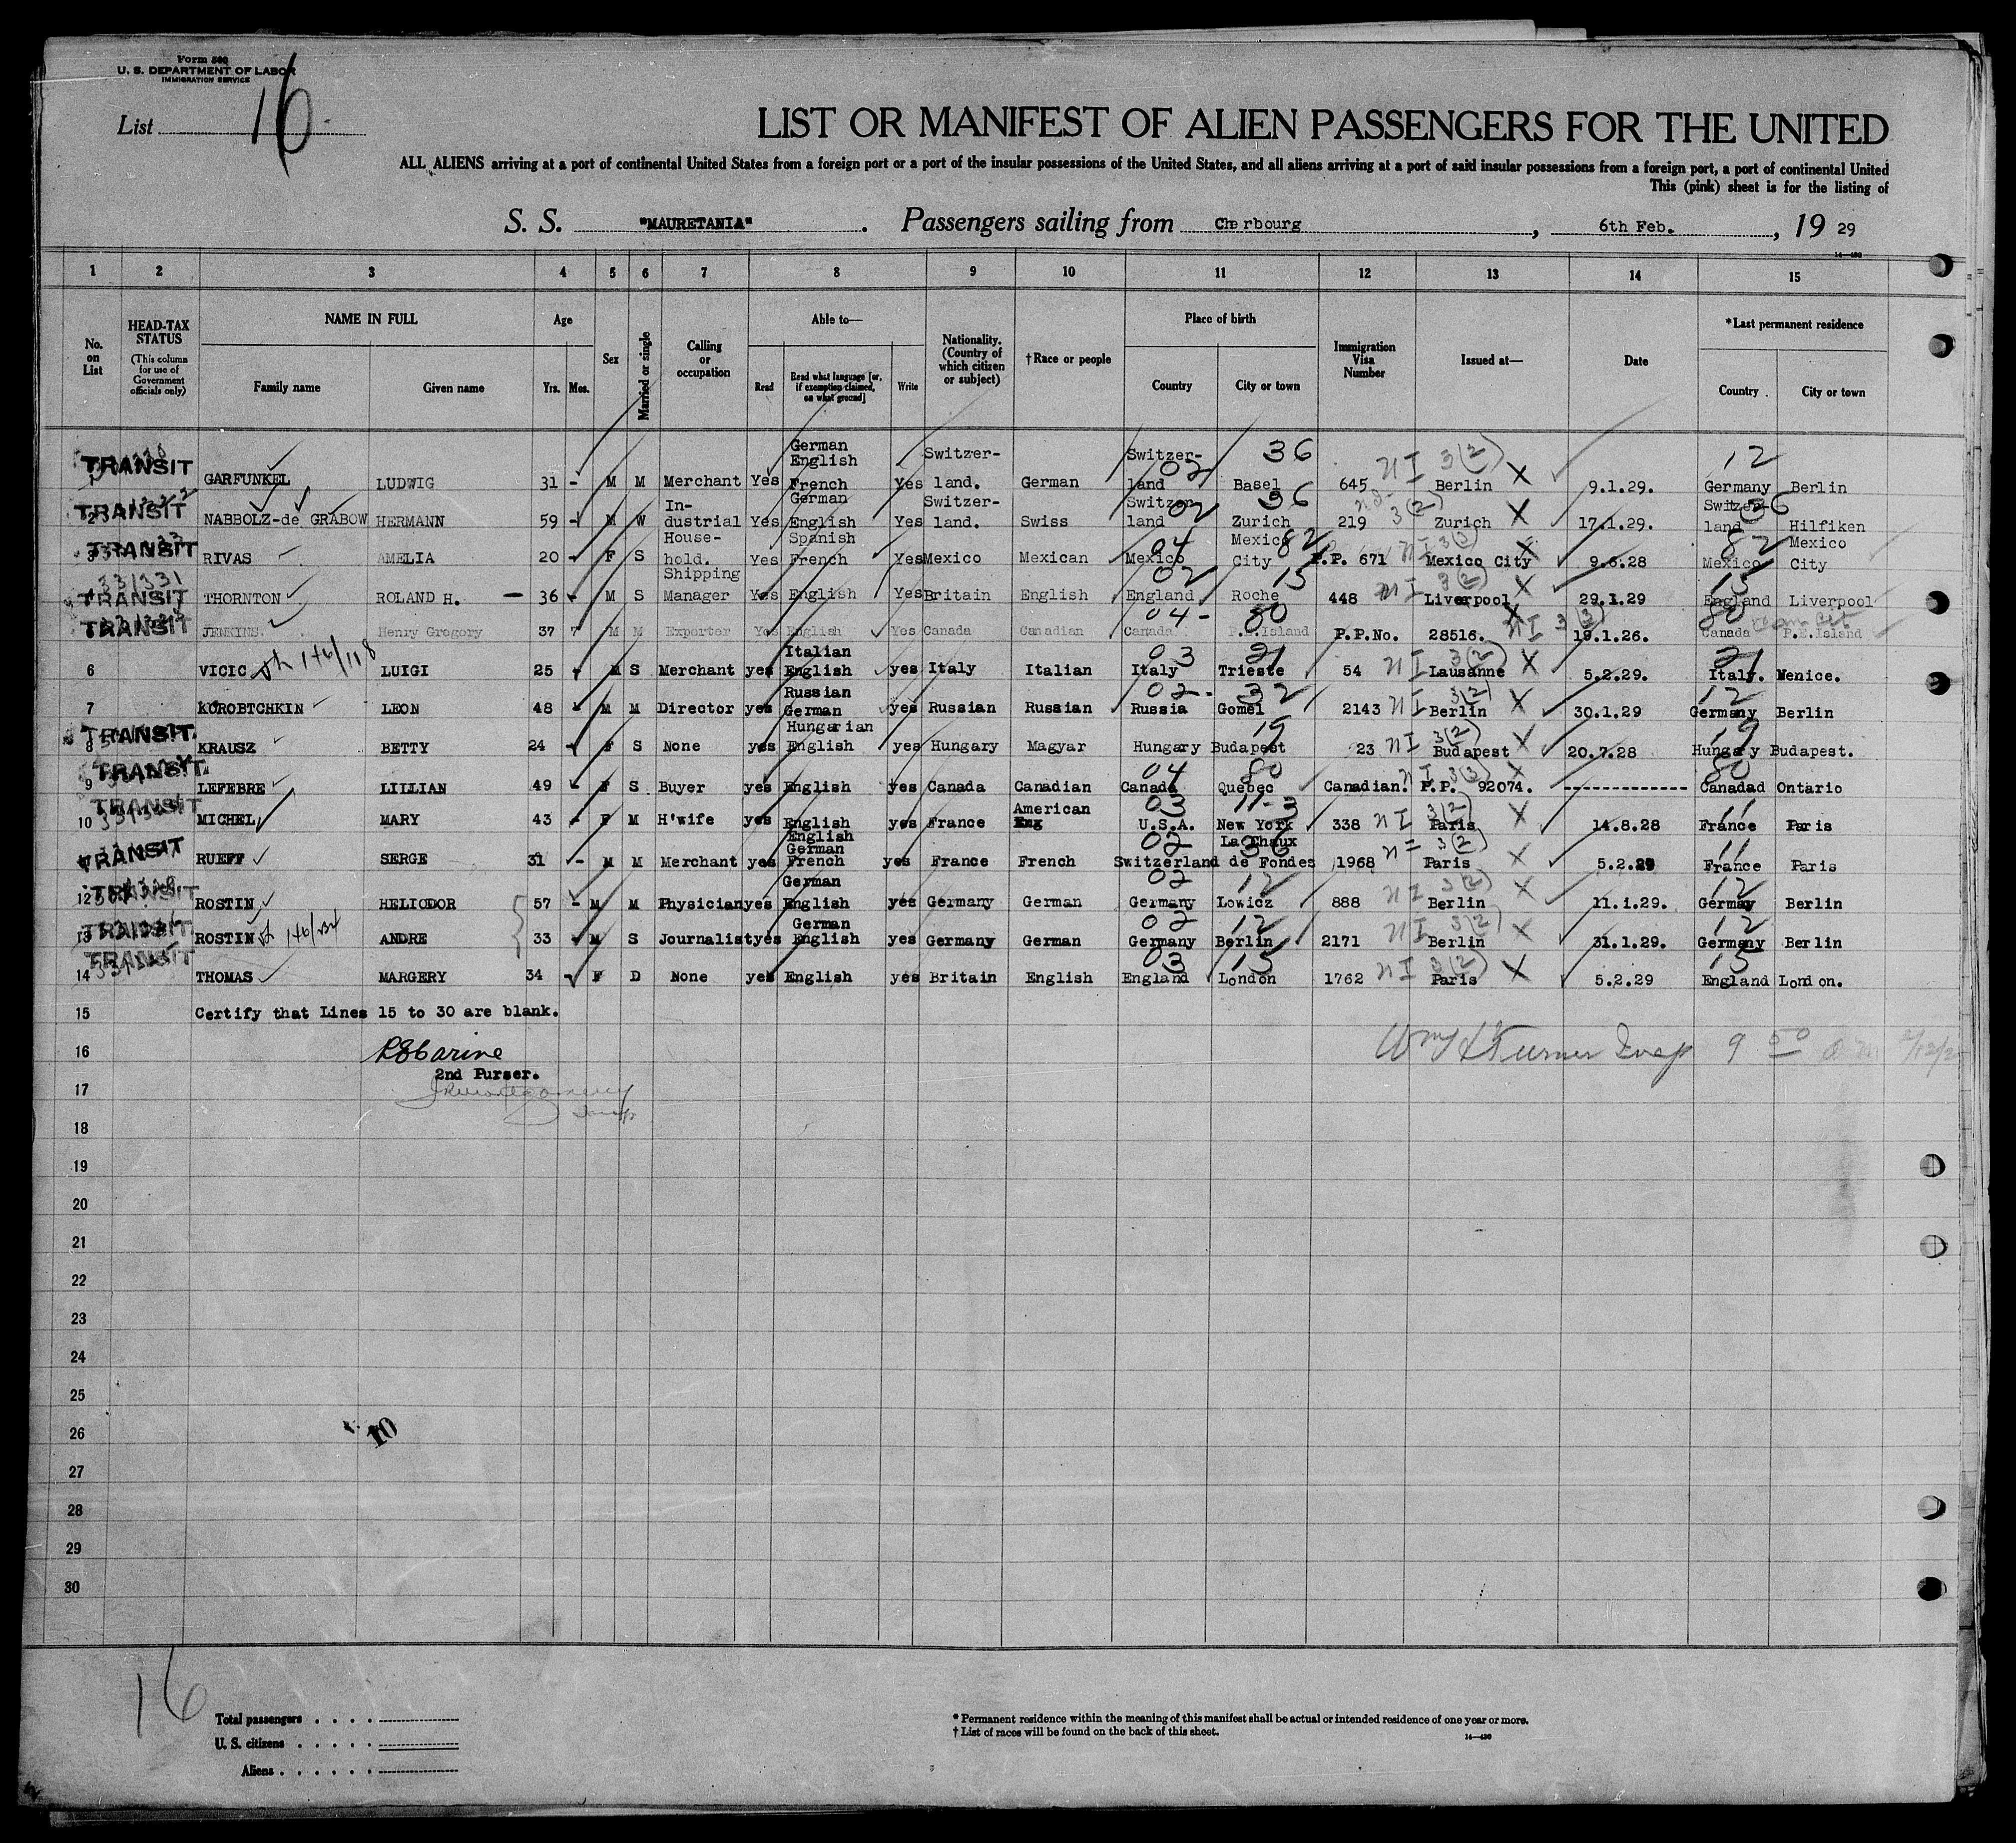 Form 500
U. S. DEPARTMENT OF LABOR
IMMIGRATION SERVICE
List 16
LIST OR MANIFEST OF ALIEN PASSENGERS FOR THE UNITED
ALL ALIENS arriving at a port of continental United States from a foreign port or a port of the insular possessions of the United States, and all aliens arriving at a port of said insular possessions from a foreign port, a port of continental United
This (pink) sheet is for the listing of
S. S. "MAURETANIA". Passengers sailing from Cherbourg, 6th Feb., 19 29
14—430
1 2 3 4 5 6 7 8 9 10 11 12 13 14 15
No. on List
HEAD-TAX STATUS (This column for use of Government officials only)
NAME IN FULL Family name Given name
Age Yrs. Mos.
Sex
Married or single
Calling or occupation
Able to— Read Read what language [or, if exemption claimed, on what ground] Write
Nationality. (Country of which citizen or subject)
†Race or people
Place of birth Country City or town
Immigration Visa Number
Issued at—
Date
*Last permanent residence Country City or town
TRANSIT GARFUNKEL LUDWIG 31 - M M Merchant Yes German English French Yes Switzer-land. German Switzer-land 02 Basel 36 645 NI 3(2) Berlin X 9.1.29. Germany 12 Berlin
2 TRANSIT NABBOLZ-de GRABOW HERMANN 59 - M W In-dustrial Yes German English Yes Switzer-land. Swiss Switzer-land 02 Zurich 36 219 3(2) Zurich X 17.1.29. Switzer-land 36 Hilfiken
3 TRANSIT RIVAS AMELIA 20 - F S House-hold. Yes Spanish French Yes Mexico Mexican Mexico 04 Mexico City 82 P.P. 671 NI 3(3) Mexico City X 9.6.28 Mexico 82 Mexico City
331331 TRANSIT THORNTON ROLAND H. — 36 - M S Shipping Manager Yes English Yes Britain English England 02 Roche 15 448 NI 3(2) Liverpool X 29.1.29 England 15 Liverpool
TRANSIT JENKINS. Henry Gregory 37 7 M M Exporter Yes English Yes Canada Canadian Canada 04- P.E.Island 80 P.P.No. 28516. X NI 3(3) 19.1.26. Canada 80 P.E.Island
6 VICIC LUIGI 25 - M S Merchant yes Italian English yes Italy Italian Italy 03 Trieste 21 54 NI 3(2) Lausanne X 5.2.29. Italy. 21 Menice.
7 KOROBTCHKIN LEON 48 - M M Director yes Russian German yes Russian Russian Russia 02- Gomel 32 2143 NI 3(2) Berlin X 30.1.29 Germany 12 Berlin
8 TRANSIT. KRAUSZ BETTY 24 - F S None yes Hungarian English yes Hungary Magyar Hungary Budapest 19 23 NI 3(2) Budapest X 20.7.28 Hungary 19 Budapest.
9 TRANSIT. LEFEBRE LILLIAN 49 - F S Buyer yes English yes Canada Canadian Canada 04 Quebec 80 Canadian. P.P. 92074. NI 3(3) X ------------- Canadad 80 Ontario
10 TRANSIT MICHEL MARY 43 - F M H'wife yes English yes France American Eng U.S.A. 03 New York 11-3 338 NI 3(2) Paris X 14.8.28 France 11 Paris
TRANSIT RUEFF SERGE 31 - M M Merchant yes English German French yes France French Switzerland 02 La Chaux de Fondes 36 1968 NI 3(2) Paris X 5.2.29 France 11 Paris
12 TRANSIT ROSTIN HELIODOR 57 - M M Physician yes German English yes Germany German Germany 02 Lowicz 12 888 NI 3(2) Berlin X 11.1.29. Germay 12 Berlin
13 TRANSIT ROSTIN ANDRE 33 - M S Journalist yes German English yes Germany German Germany 02 Berlin 12 2171 NI 3(2) Berlin X 31.1.29. Germany 12 Berlin
14 TRANSIT THOMAS MARGERY 34 - F D None yes English yes Britain English England 03 London 15 1762 NI 3(2) Paris X 5.2.29 England 15 London.
15 Certify that Lines 15 to 30 are blank.
16 Turner Insp 9 50
2nd Purser.
17
18
19
20
21
22
23
24
25
26
10
27
28
29
30
16
Total passengers . . . .
U. S. citizens . . . . .
Aliens . . . . . .
* Permanent residence within the meaning of this manifest shall be actual or intended residence of one year or more.
† List of races will be found on the back of this sheet.
14—430